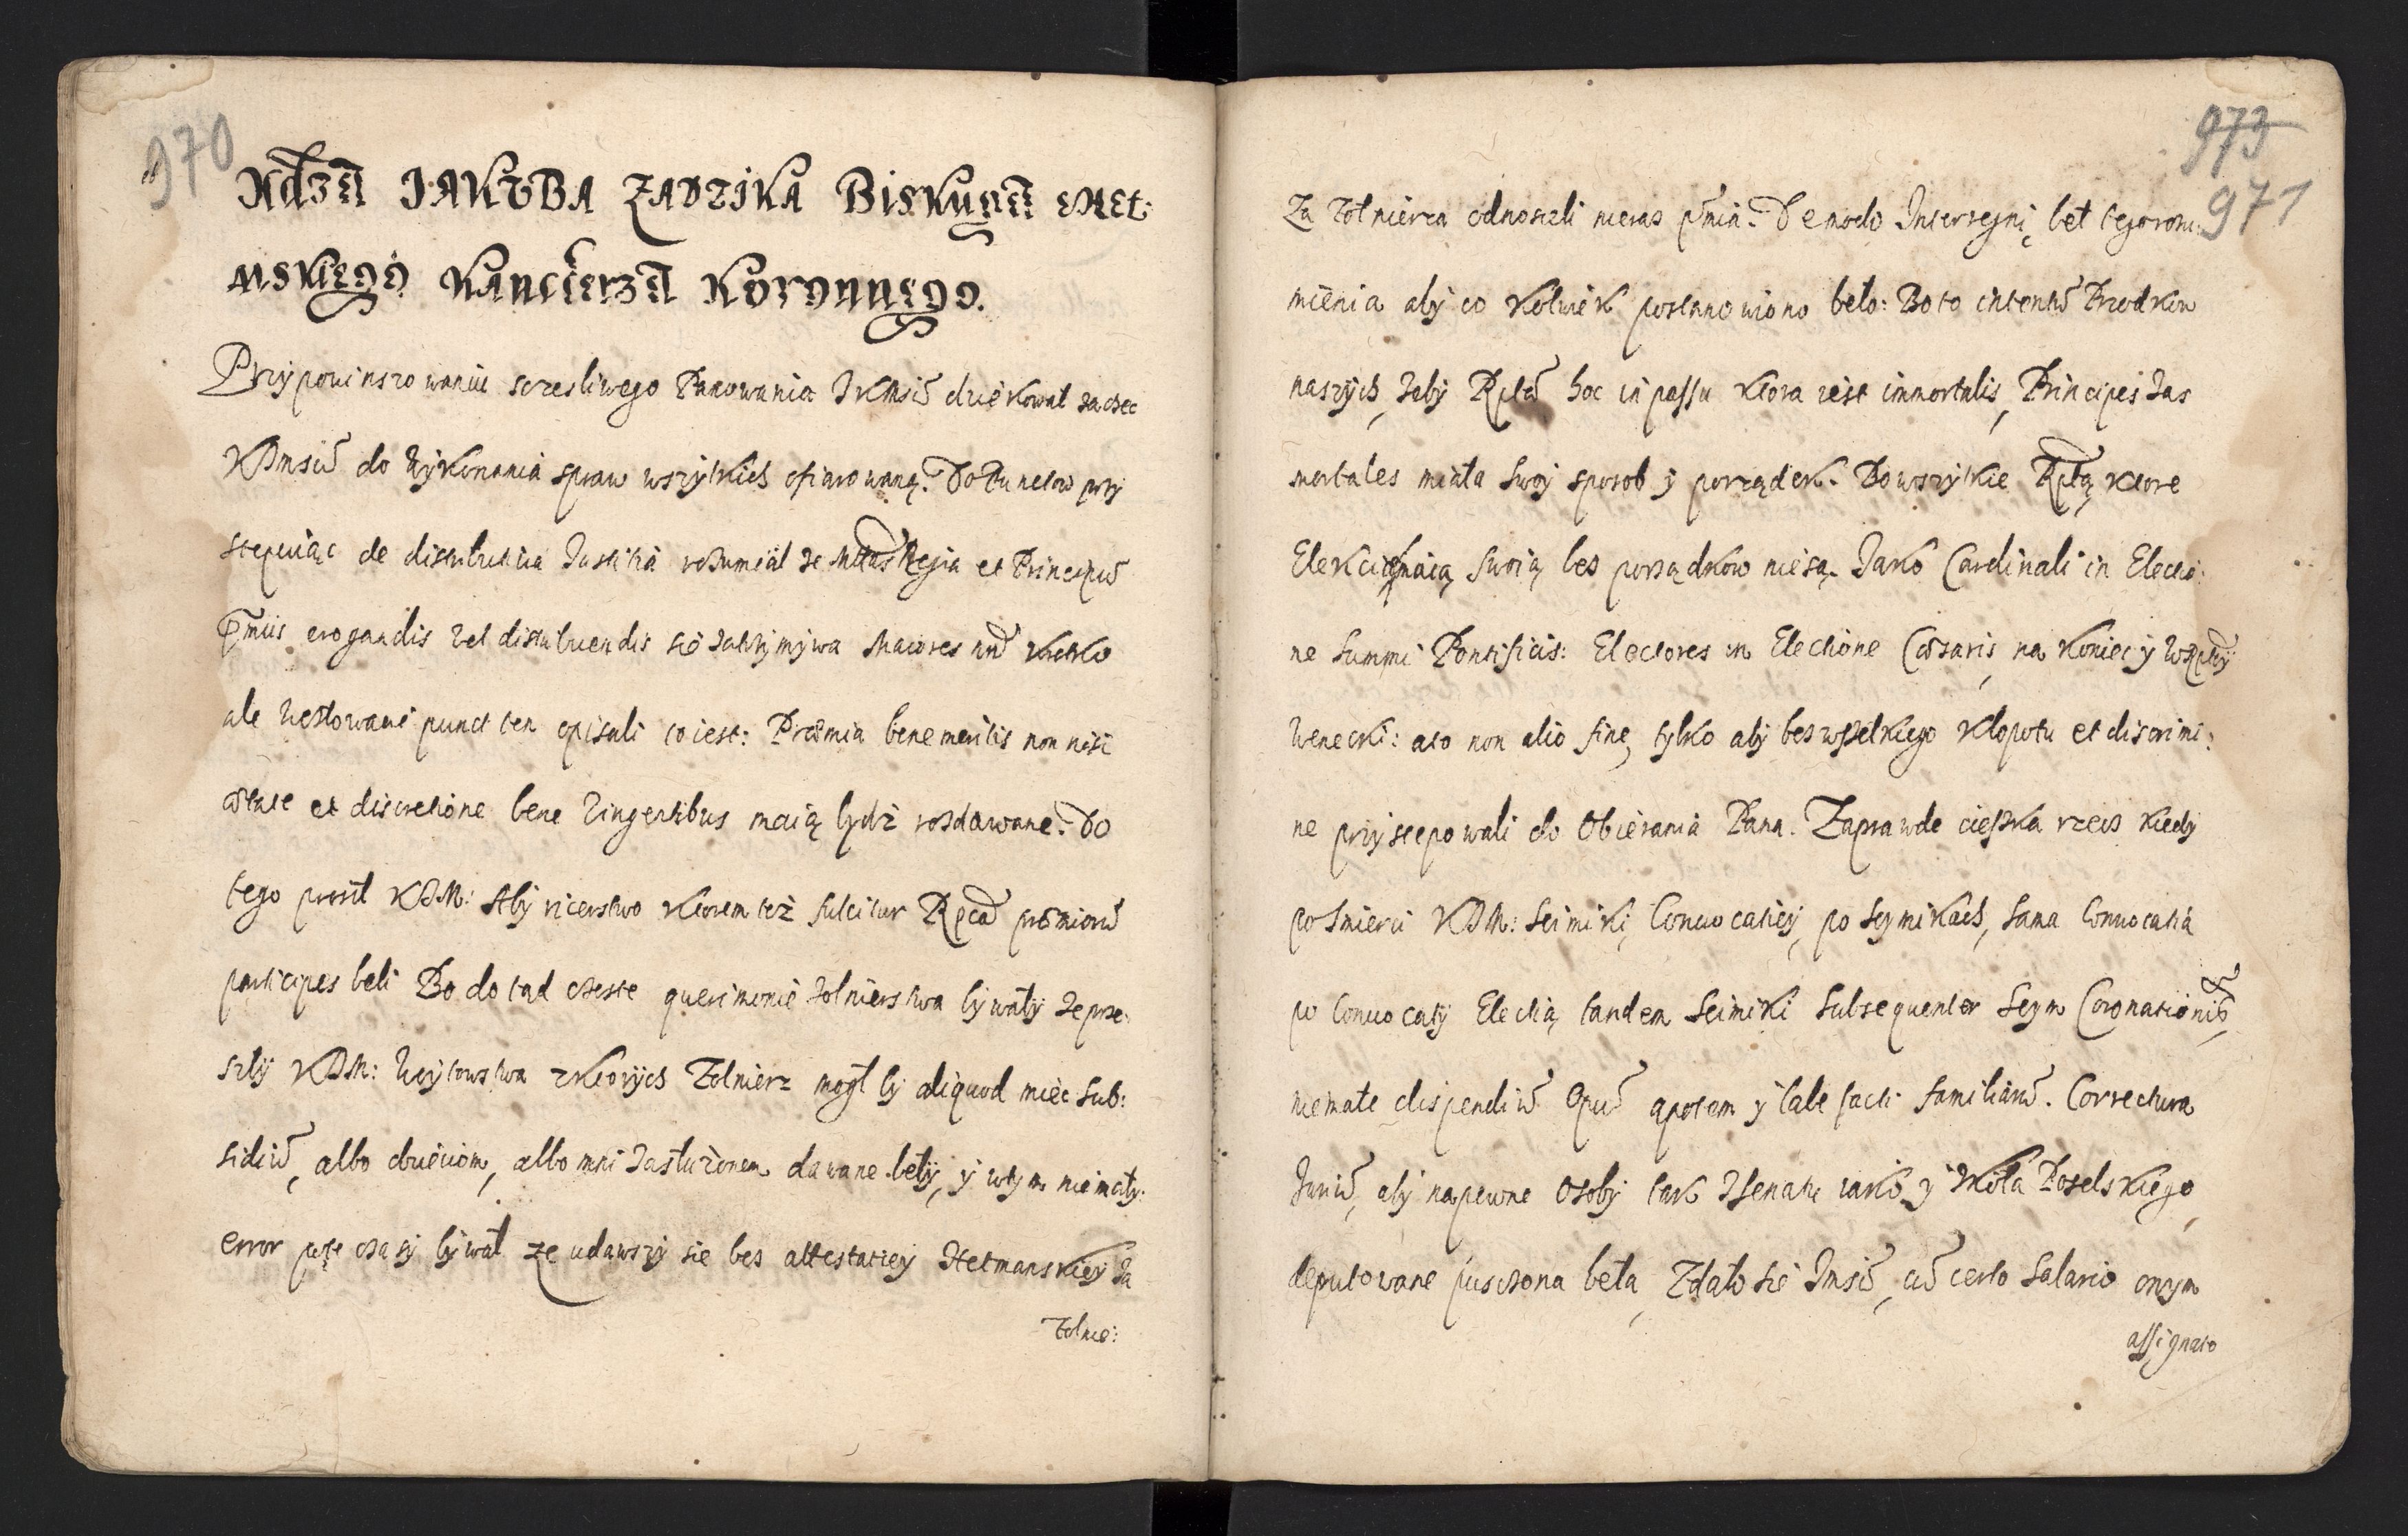 970
Xdza JAKUBA ZADZIKA Biskupa Cheł:
mskiego Kanclerza Koronnego.
Przy powinszowaniu sczesliwego Panowania JKMsci dziękował za chęc
KJMsci do wykonania spraw wszytkich ofiarowaną. Do Punctow przy
stępuiąc de distributiva Justitia rozumiał ze Mttas Regia et Principum
pmiis erogandis vel distribuendis się zatrzymywa Maiores nri krotko
ale węzłowaie punct ten opisali to iest: Præmia bene meritis non nisi
ætate et discretione bene vingentibus maią bydź rosdawane. Do
tego prosił KJM: Aby ricerstwo ktorem też fulcitur Rpca præmiorum
participes beli Bo do tad czeste querimonie żolnierstwa bywały ze prze:
szły KJM: Woytowstwa z ktorych Żolnierz mogł by aliquod miec sub:
sidium, albo dzieciom, albo mni zasłużonem dawane beły, y w tym nie mały:
error pte czasy bywał ze udawszy sie bes attestatiey Hetmanskiey za
Żolnie:
973
971
Za żołnierza odnoszli nieras pmia. De modo Interregni bet tego rozu:
mienia aby co kolwiek postanowiono beło: Bo to intentum Przodkow
naszych, zeby Rpta hoc in passu ktora iest immortalis, Principes zas
mortales miała swoy sposob y porządek. Bo wszytkie Rptą ktore
Elekcią maią swoią bes porządkow nie są. Jako Cardinali in Electio:
ne Summi Pontificis: Electores in Electione Cæsaris, na koniec y w Rptey
Weneckiː a to non alio fine, tylko aby bes wszelkiego kłopotu et discrimi:
ne przystępowali do Obierania Pana. Zaprawde cięszka rzecz kiedy
po smierci KJM: Seimiki, Convocatiey, po Seymikach, sama Convocatia
po Convocaty Electią, tandem Seimiki subsequenter Seym Coronationis,
niemałe dispendium Opum a potem y tale facti familiarum. Correctura
Jurium, aby na pewne Osoby tak z Senatu iako y z Koła Poselskiego,
deputowane pusczona beła, Zdało się Jmsci, cum certo Salario onym
assignato